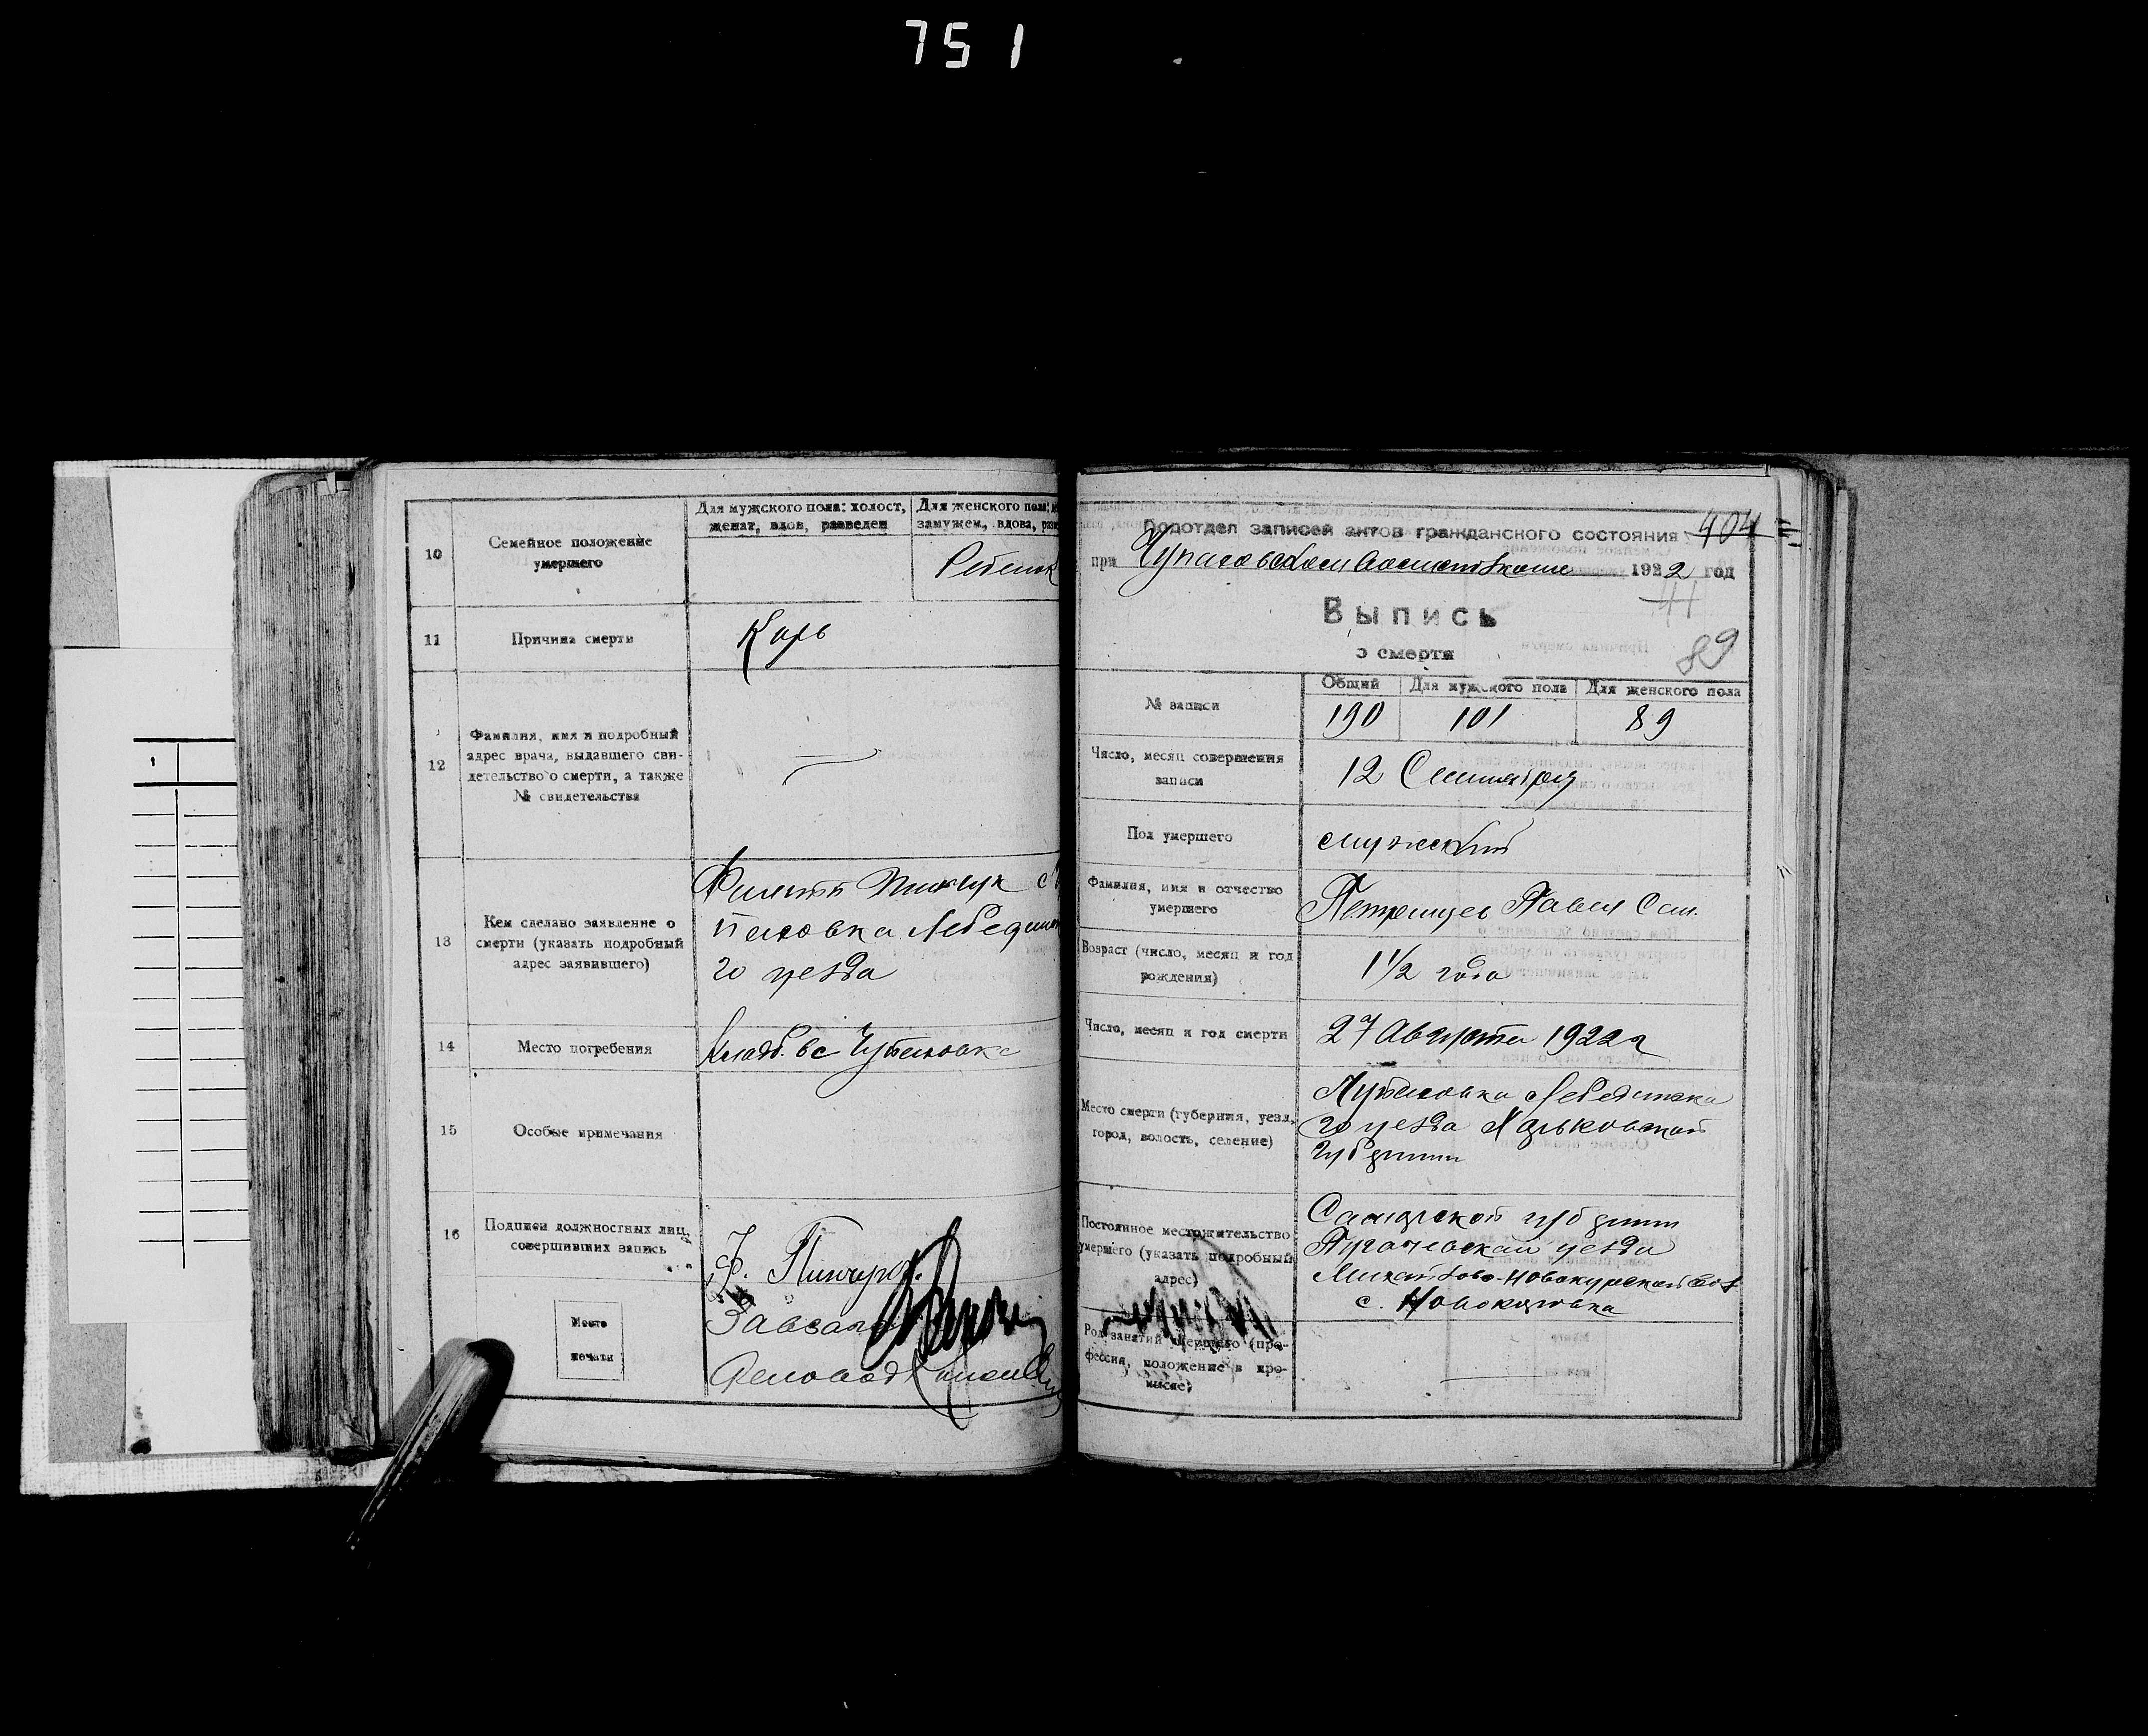 751
10
Семейное положение
умершего
Для мужского пола: холост,
женат, вдов, разведен
Для женского пола:
замужем, вдова,
Ребенок
11
Причина смерти
Корь
12
Фамилия, имя и подробный
адрес врача, выдавшего сви-
детельство о смерти, а также
№ свидетельства
13
Кем сделано заявление о
смерти (указать подробный
адрес заявившего)
Филипп Пинчук с
паховка Лебедин
го уезда
14
Место погребения
Кладб. в с
15
Особые примечания
16
Подписи должностных лиц,
совершивших запись
Ф. Пинчук
Завзаг
Деловод
Место
печати
Подотдел записей актов гражданского состояния
404
при
1922 год
41
Выпись
о смерти
89
№ записи
Общий
Для мужского пола
Для женского пола
190
101
89
Число, месяц совершения
записи
12 Сентября
Пол умершего
мужской
Фамилия, имя и отчество
умершего
Павел Сем.
Возраст (число, месяц и год
рождения)
1 1/2 года
Число, месяц и год смерти
27 Августа 1922 г
Место смерти (губерния, уезд,
город, волость, селение)
Лебединска
го уезда Харьковской
губернии
Постоянное местожительство
умершего (указать подробный
адрес)
Самарской губернии
Пугачевской уезда
с.
Род занятий умершего (про-
фессия, положение в про-
мысле)
1